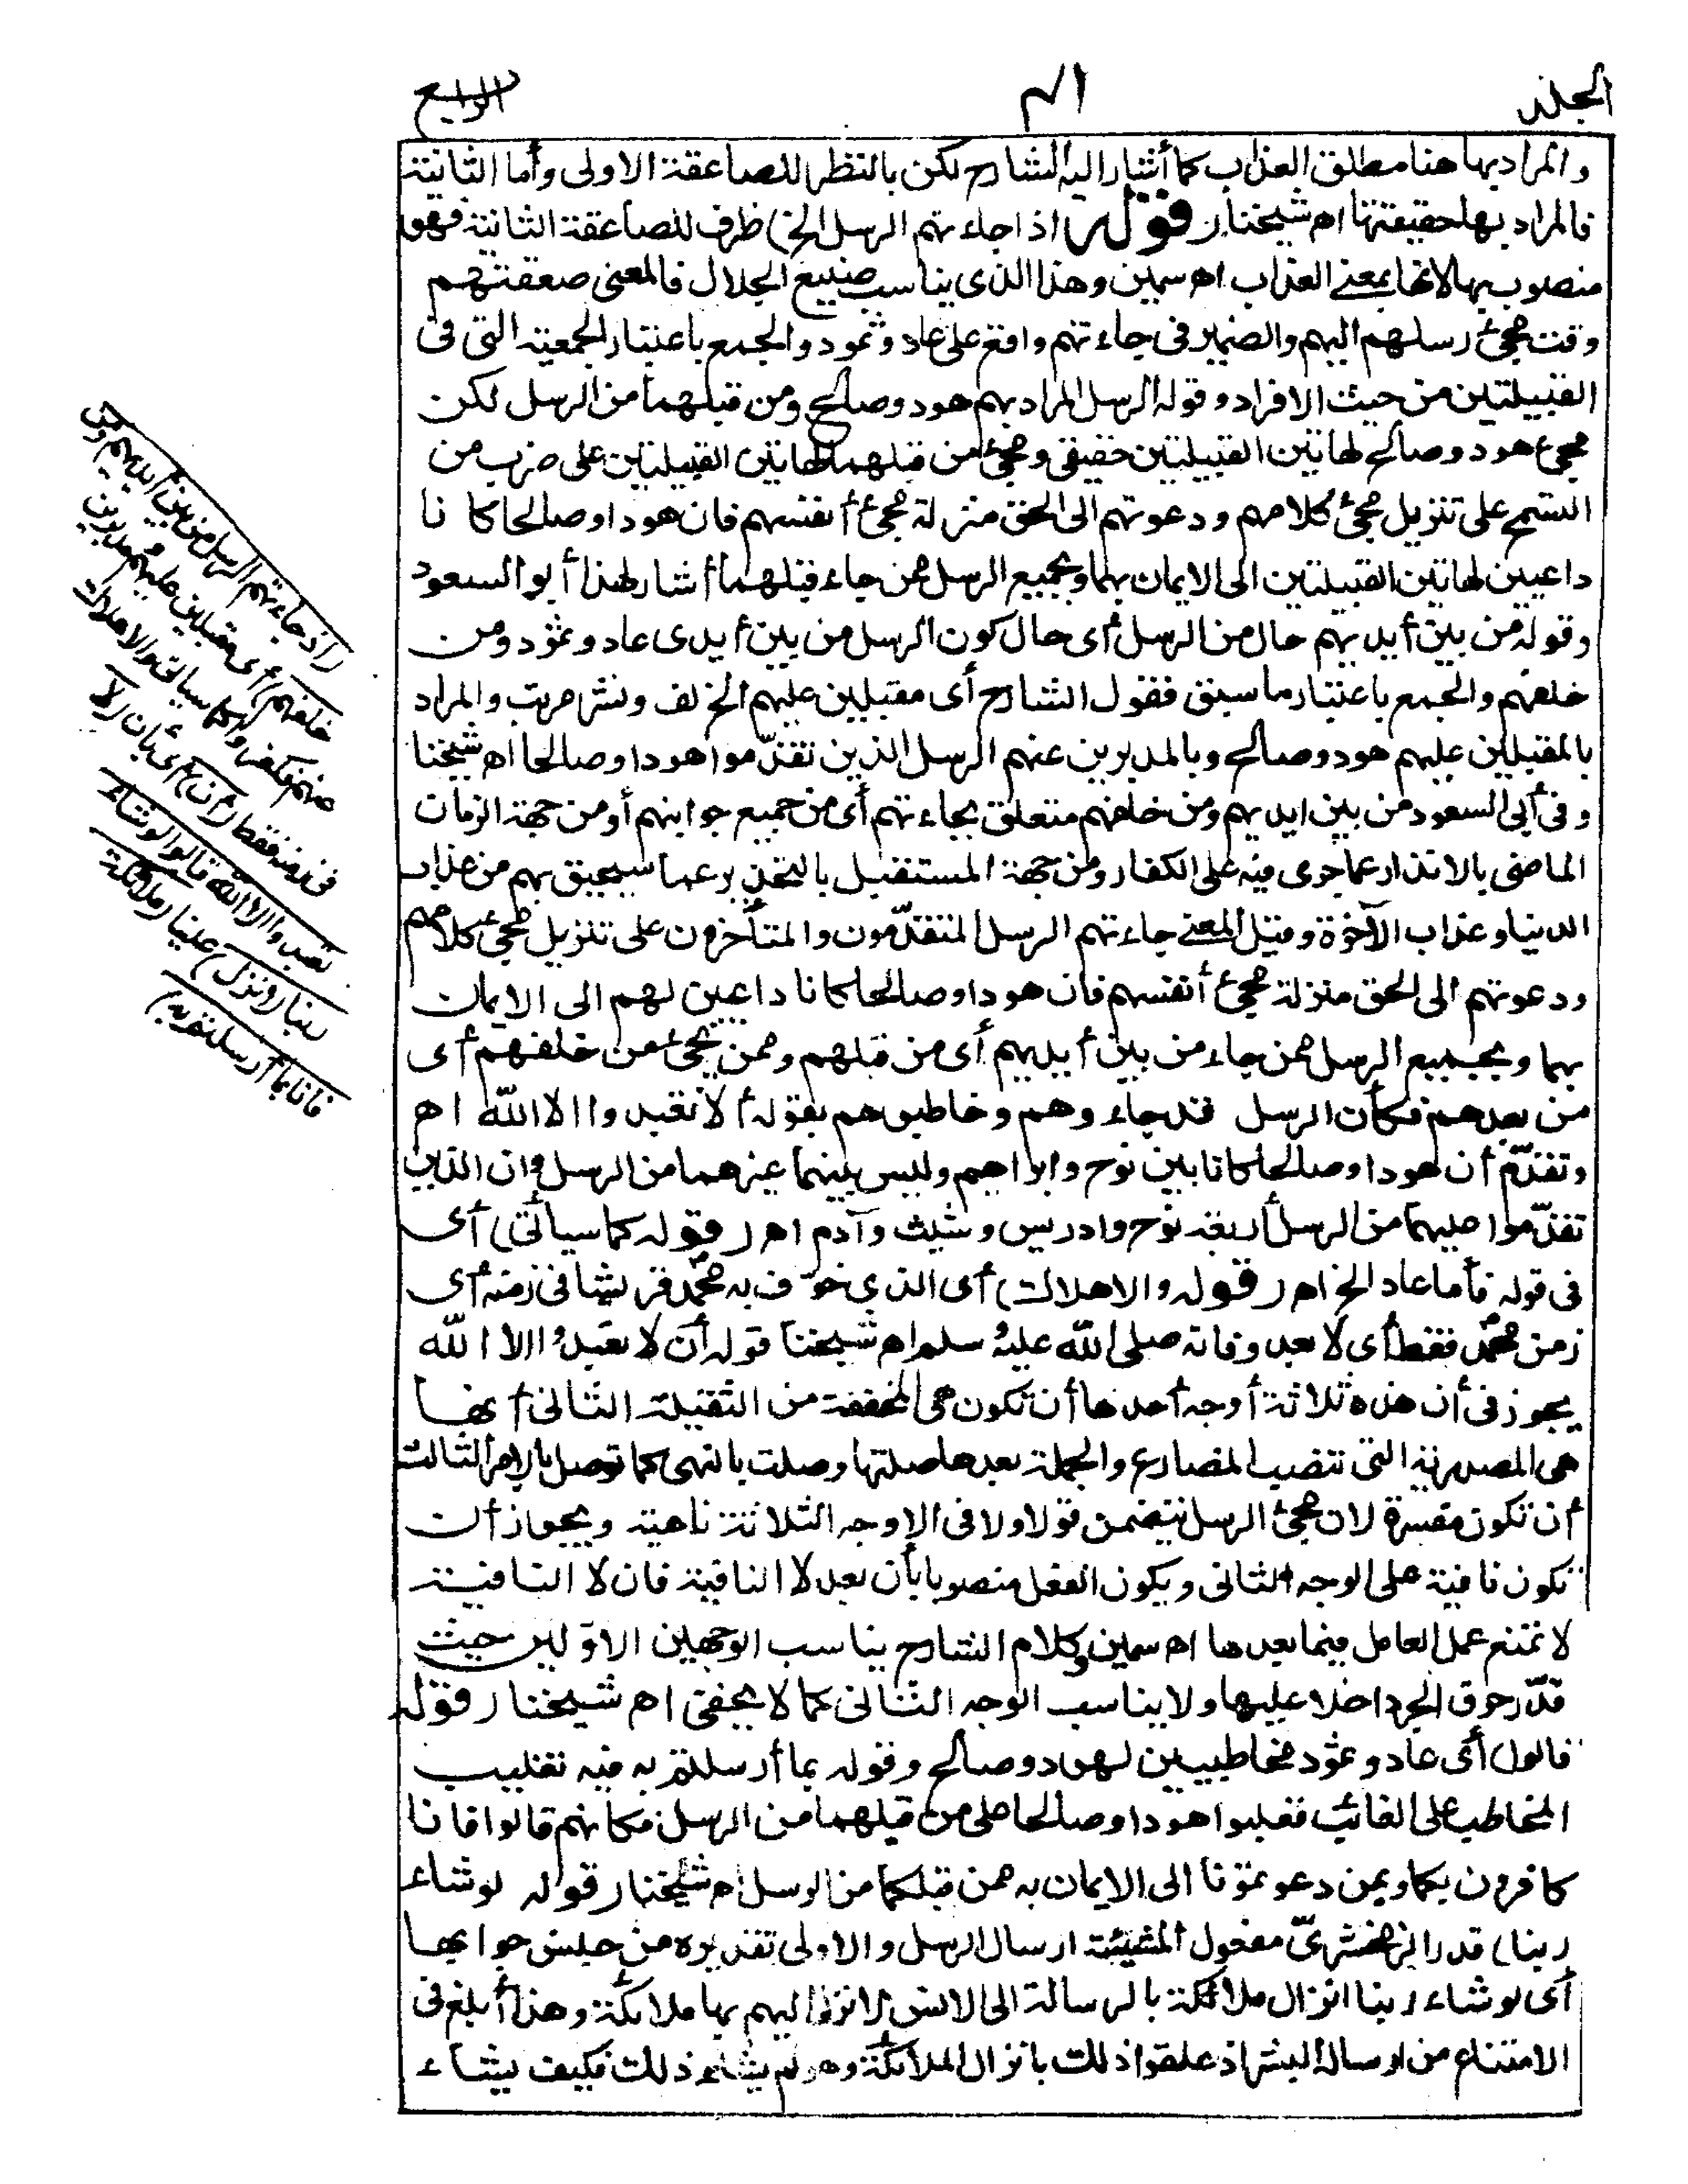 المجلد
الرابع
والمراد بها هنا مطلق العذاب كما أشار اليه الشارح لكن بالنظر للصاعقة الاولى وأما الثانية
فالمراد بها حقيقتها اه شيخنا (قوله اذ جاءتهم الرسل الخ) ظرف للصاعقة الثانية فهو
منصوب بها لانها بمعنى العذاب اه سمين وهذا الذى يناسب صنيع الجلال فالمعنى صعقتهم
وقت مجئ رسلهم اليهم والضمير فى جاءتهم واقع على عاد وثمود والجمع باعتبار الجمعية التى فى
القبيلتين من حيث الافراد وقوله الرسل المراد بهم هود وصالح ومن قبلهما من الرسل لكن
مجئ هود وصالح لهاتين القبيلتين حقيقى ومجئ من قبلهما لهاتين القبيلتين على ضرب من
التسمح على تنزيل مجئ كلامهم ودعوتهم الى الحق منزلة مجئ أنفسهم فان هودا وصالحا كانا
داعيين لهاتين القبيلتين الى الايمان بهما وبجميع الرسل ممن جاء قبلهما أشار لهذا أبو السعود
وقوله من بين أيديهم حال من الرسل أى حال كون الرسل من بين أيدى عاد وثمود ومن
خلفهم والجمع باعتبار ما سبق فقول الشارح أى مقبلين عليهم الخ لف ونشر مرتب والمراد
بالمقبلين عليهم هود وصالح وبالمدبرين عنهم الرسل الذين تقدّموا هودا وصالحا اه شيخنا
وفى أبى السعود من بين ايديهم ومن خلفهم متعلق بجاءتهم أى من جميع جوانبهم أو من جهة الزمان
الماضى بالانذار عما جرى فيه على الكفار ومن جهة المستقبل بالتحذير عما سيحيق بهم من عذاب
الدنيا وعذاب الآخرة وقيل المعنى جاءتهم الرسل المتقدّمون والمتأخرون على تنزيل مجئ كلامهم
ودعوتهم الى الحق منزلة مجئ أنفسهم فان هودا وصالحا كانا داعيين لهم الى الايمان
بهما وبجميع الرسل ممن جاء من بين أيديهم أى من قبلهم وممن يجئ من خلفهم أى
من بعدهم فكأن الرسل قد جاءوهم وخاطبوهم بقوله ألا تعبدوا الا الله اه
وتقدّم أن هودا وصالحا كانا بين نوح وابراهيم وليس بينهما غيرهما من الرسل وان الذين
تقدّموا عليهما من الرسل أربعة نوح وادريس وشيث وآدم اه (قوله كما سيأتى) أى
فى قوله فأما عاد الخ اه (قوله والاهلاك) أى الذي خوّف به محمد قريشا فى زمنه أى
زمن محمد فقط أى لا بعد وفاته صلى الله عليه وسلم اه شيخنا قوله أن لا تعبدوا الا الله
يجوز فى أن هذه ثلاثة أوجه أحدها أن تكون هى المخففة من الثقيلة الثانى أنها
هى المصدرية التى تنصب المضارع والجملة بعدها صلتها وصلت بالنهى كما توصل بالامر الثالث
أن تكون مفسرة لان مجئ الرسل يتضمن قولا ولا فى الاوجه الثلاثة ناهية ويجوز أن
تكون نافية على الوجه الثانى ويكون الفعل منصوبا بأن بعد لا النافية فان لا النافية
لا تمنع عمل العامل فيما بعدها اه سمين وكلام الشارح يناسب الوجهين الاوّلين حيث
قدّر حرف الجر داخلا عليها ولا يناسب الوجه الثانى كما لا يخفى اه شيخنا (قوله
قالوا) أى عاد وثمود مخاطبين لهود وصالح وقوله بما أرسلتم به فيه تغليب
المخاطب على الغائب فغلبوا هودا وصالحا على من قبلهما من الرسل فكأنهم قالوا فانا
كافرون بكما وبمن دعوتمونا الى الايمان به ممن قبلكما من الرسل اه شيخنا (قوله لو شاء
ربنا) قدر الزمخشرىّ مفعول المشيئة ارسال الرسل والاولى تقديره من جنس جوابها
أى لو شاء ربنا انزال ملائكة بالرسالة الى الانس لانزل اليهم بها ملائكة وهذا أبلغ فى
الامتناع من ارسال البشر اذ علقوا ذلك بانزال الملائكة وهو لم يشاء ذلك فكيف يشاء
(اذ جاءتهم الرسل من بين أيديهم ومن
خلفهم) أى مقبلين عليهم ومدبرين
عنهم فكفروا كما سيأتى والاهلاك
فى زمنه فقط (أن) أى بأن (لا
تعبدوا الا الله قالوا لو شاء
ربنا لأنزل) علينا (ملائكة
فانا بما أرسلتم به)